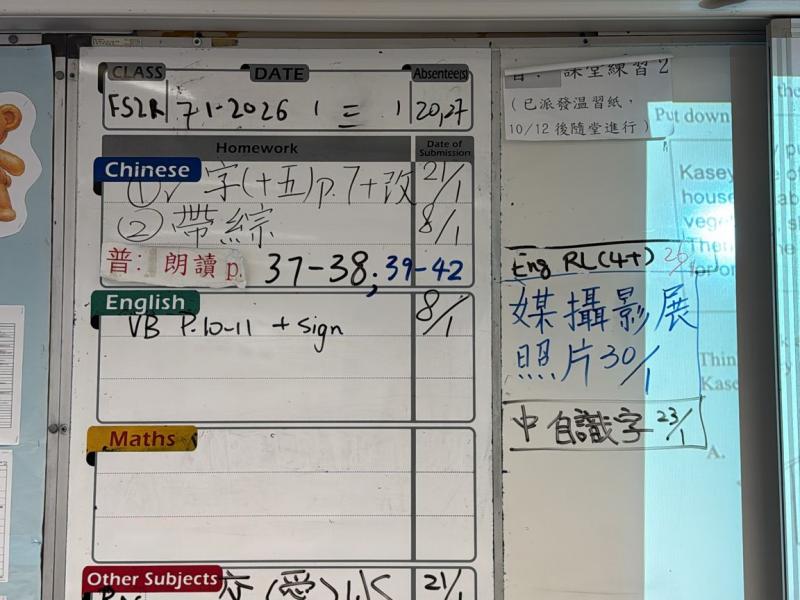 CLASS DATE Absentee(s)
7-1-2026 三 20,27
Homework Date of Submission
Chinese
① ✓ 字(十五)p.7+改 21/1
② 帶綜 8/1
普: 朗讀 p. 37-38; 39-42
English
VB P.10-11 + sign 8/1
Maths
Other Subjects
21/1
課堂練習 2
(已派發溫習紙,
10/12 後隨堂進行)
Eng RL(4+)
媒攝影展
照片 30/1
中 自識字 23/1
Put down
Kasey
house
Then
Thin
Kase
A.